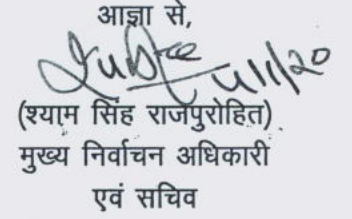 आज्ञा से,
4/1/20
(श्याम सिंह राजपुरोहित)
मुख्य निर्वाचन अधिकारी
एवं सचिव